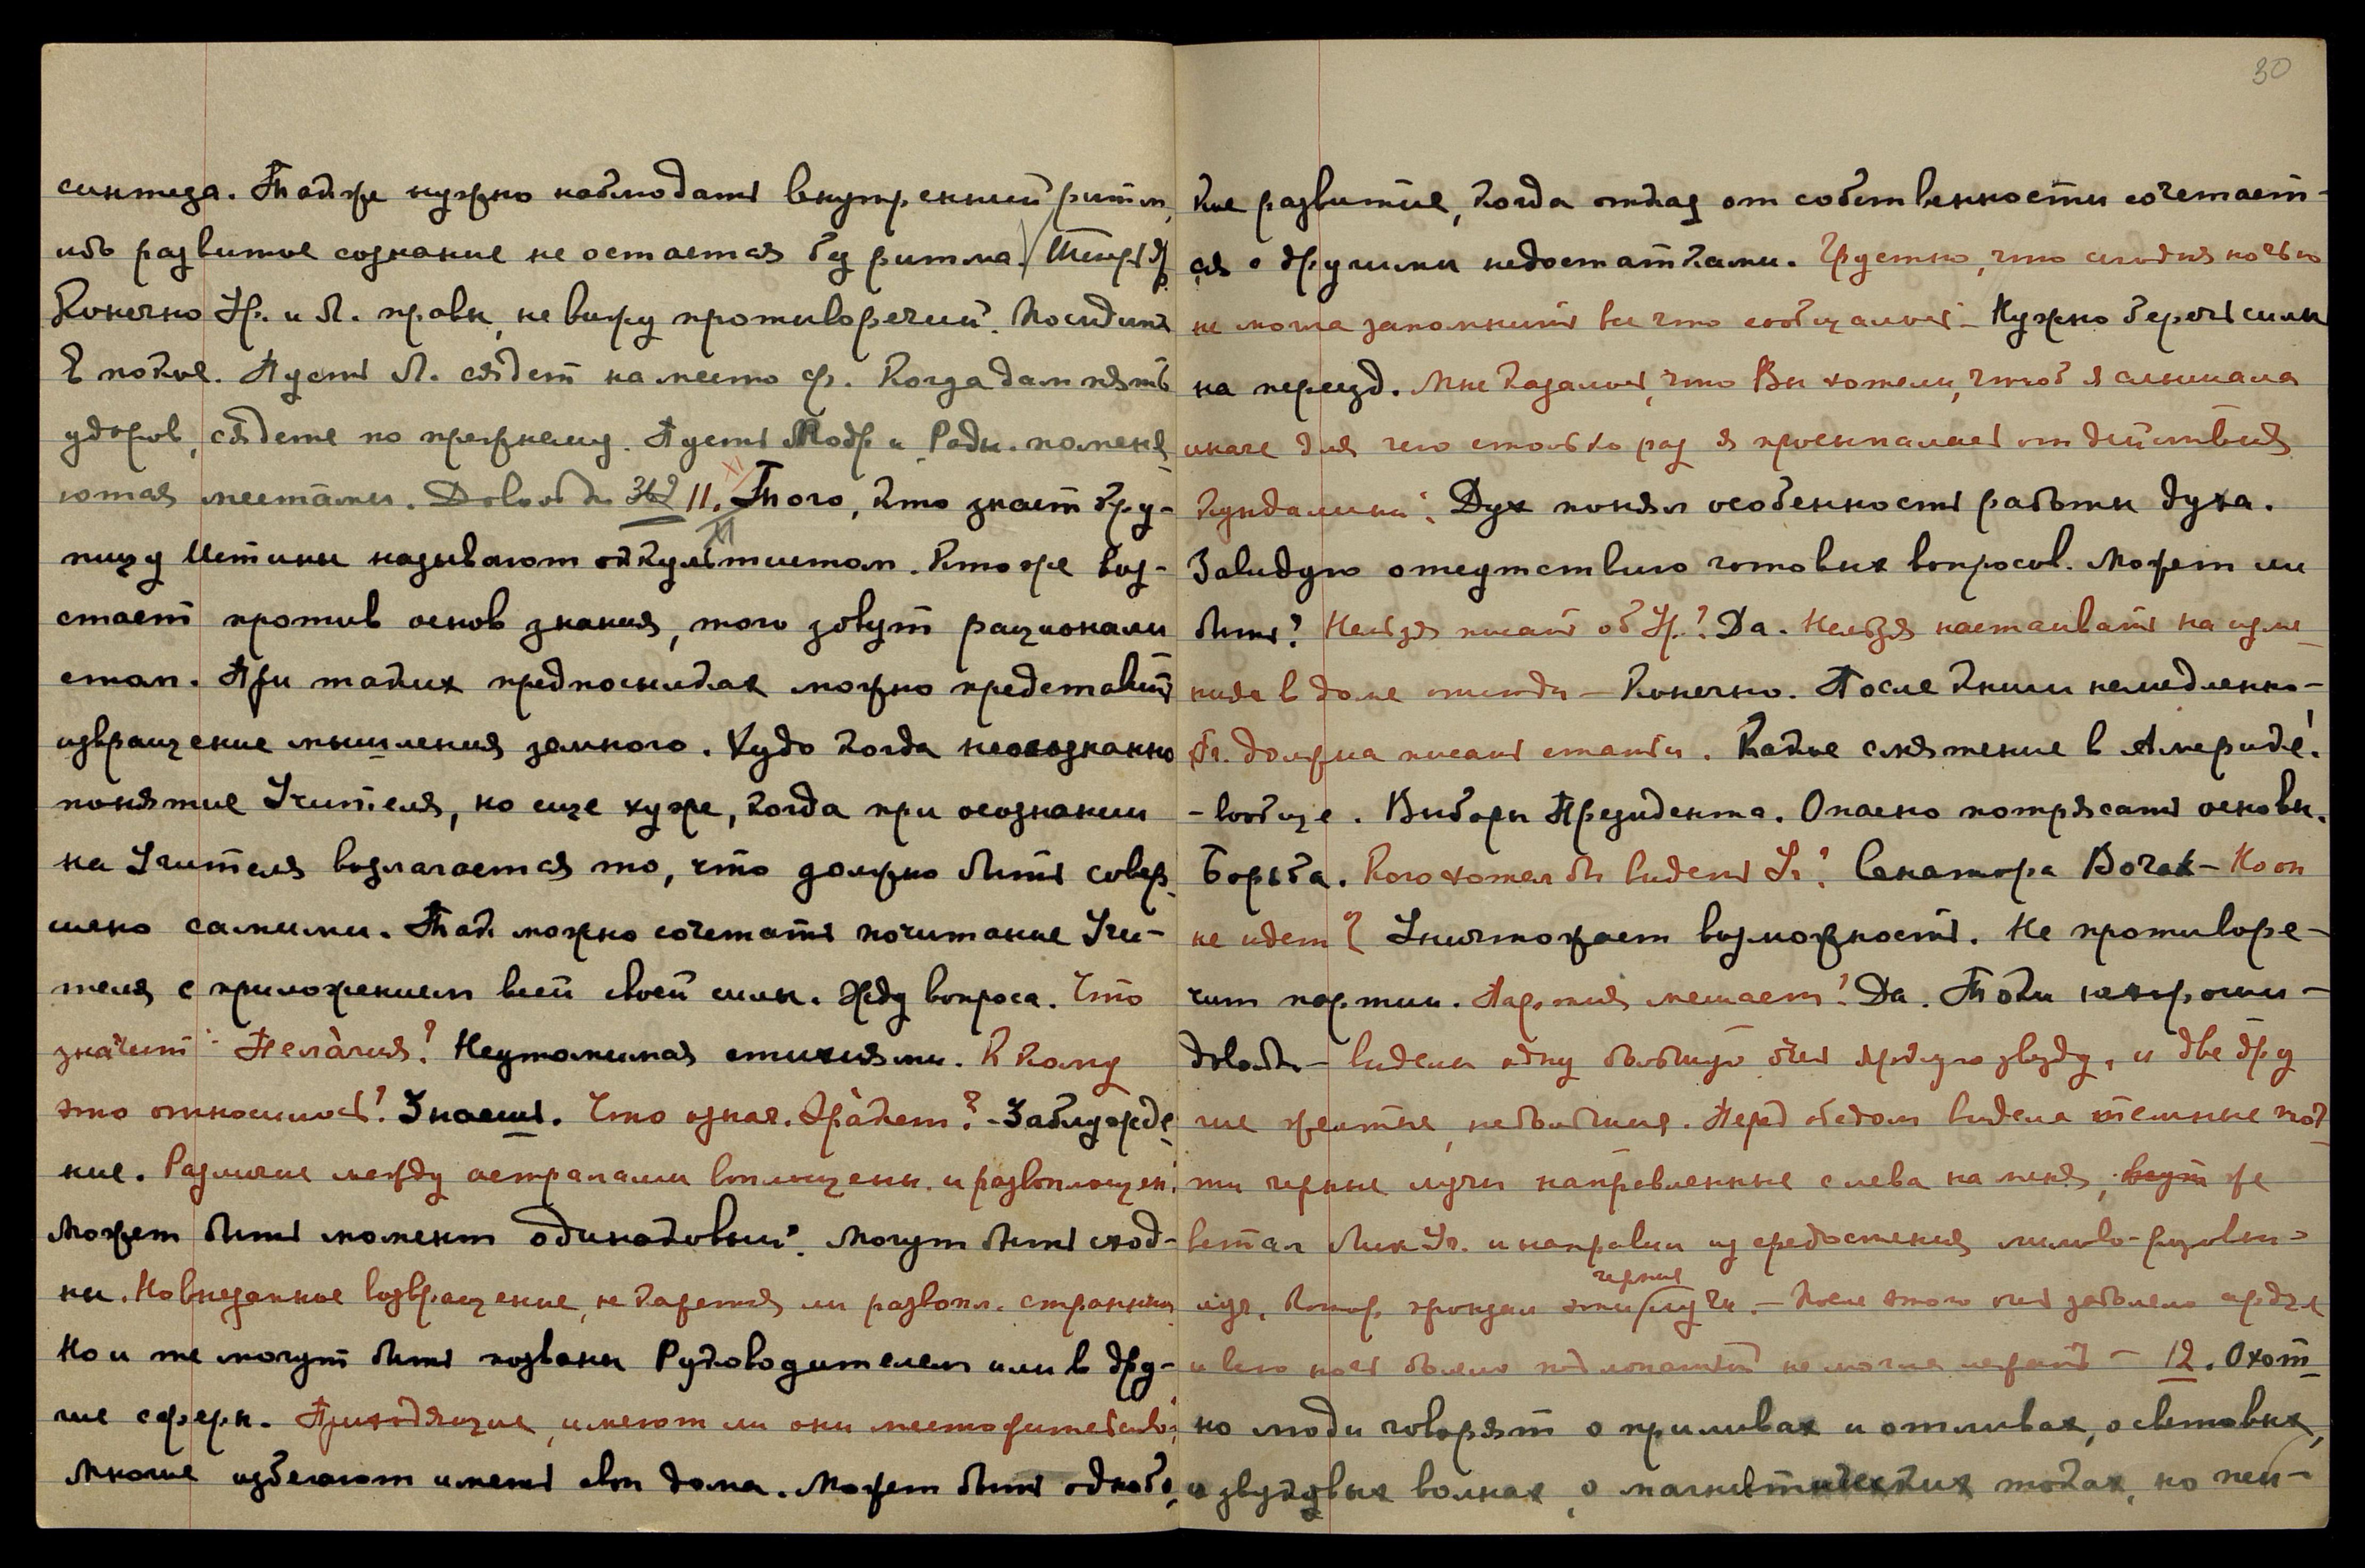 синтеза. Также нужно наблюдать внутренний ритм,
ибо развитое сознание не остается без ритма.
Конечно Ур. и Л. правы, не вижу противоречий. Посидите
в покое. Пусть Л. сядет на место Ф. Когда дам пять
ударов, сядете по прежнему. Пусть Модр. и Радн. поменя-
ются местами. Довольно 11. Того, кто знает кру-
пицу Истины называют оккультистом. Кто же вос-
стает против основ знания, того зовут рационали
стом. При таких предпосылках можно представить
извращение мышления земного. Худо когда неосознанно
понятие Учителя, но еще хуже, когда при осознании
на Учителя возлагается то, что должно быть совер-
шено самими. Так можно сочетать почитание Учи-
теля с приложением всей своей силы. Жду вопроса. Что
значит Пелагия? Неутомимая стихиями. К кому
это относилось? Знаешь. Что означ. Аракет? - Заблужде-
ние. Различие между астралами воплощенн. и развоплощен.
Может быть момент одинаковый? Могут быть сход-
ны. Но внезапное возвращение, не кажется ли развопл. странным
Но и те могут быть позваны Руководителем или в дру-
гие сферы. Приходящие, имеют ли они местожительство?
Многие избегают иметь свои дома. Может быть однобо-
30
кое развитие, когда отказ от собственности сочетает-
ся с другими недостатками. Грустно, что сегодня ночью
не могла запомнить все что сообщалось - Нужно беречь силы
на переезд. Мне казалось, что Вы хотели, чтоб я слышала
иначе для чего столько раз я просыпалась от действия
Кундалини. Дух понял особенность работы духа.
Завидую отсутствию готовых вопросов. Может ли
быть? Нельзя писать об Ур.? Да. Нельзя настаивать на изме-
нида в доме отходы - Конечно. После книги немедленно -
Фр. должна писать статьи. Какое смятение в Америке!
- вообще. Выборы Президента. Опасно потрясать основы.
Борьба. Кого хотел бы видеть Уч.? Сенатора Вочак - Но он
не идет? Уничтожает возможность. Не противоре-
чит партии. Партия мешает? Да. Токи нехороши -
довольно - видела одну большую очень яркую звезду, и две дру
гие желтые, небольшие. Перед обедом видела темные поч-
ти черные лучи направленные слева на меня, же
встал Лик Уч. и направил из средостения лилово-розовый
луч, котор. пронзил эти черные лучи. - После этого очень заболело сердце
и всю ночь болело под лопаткой не могла лежать - 12. Охот-
но люди говорят о приливах и отливах, о световых,
о звуковых волнах, о магнетических токах, но пси-